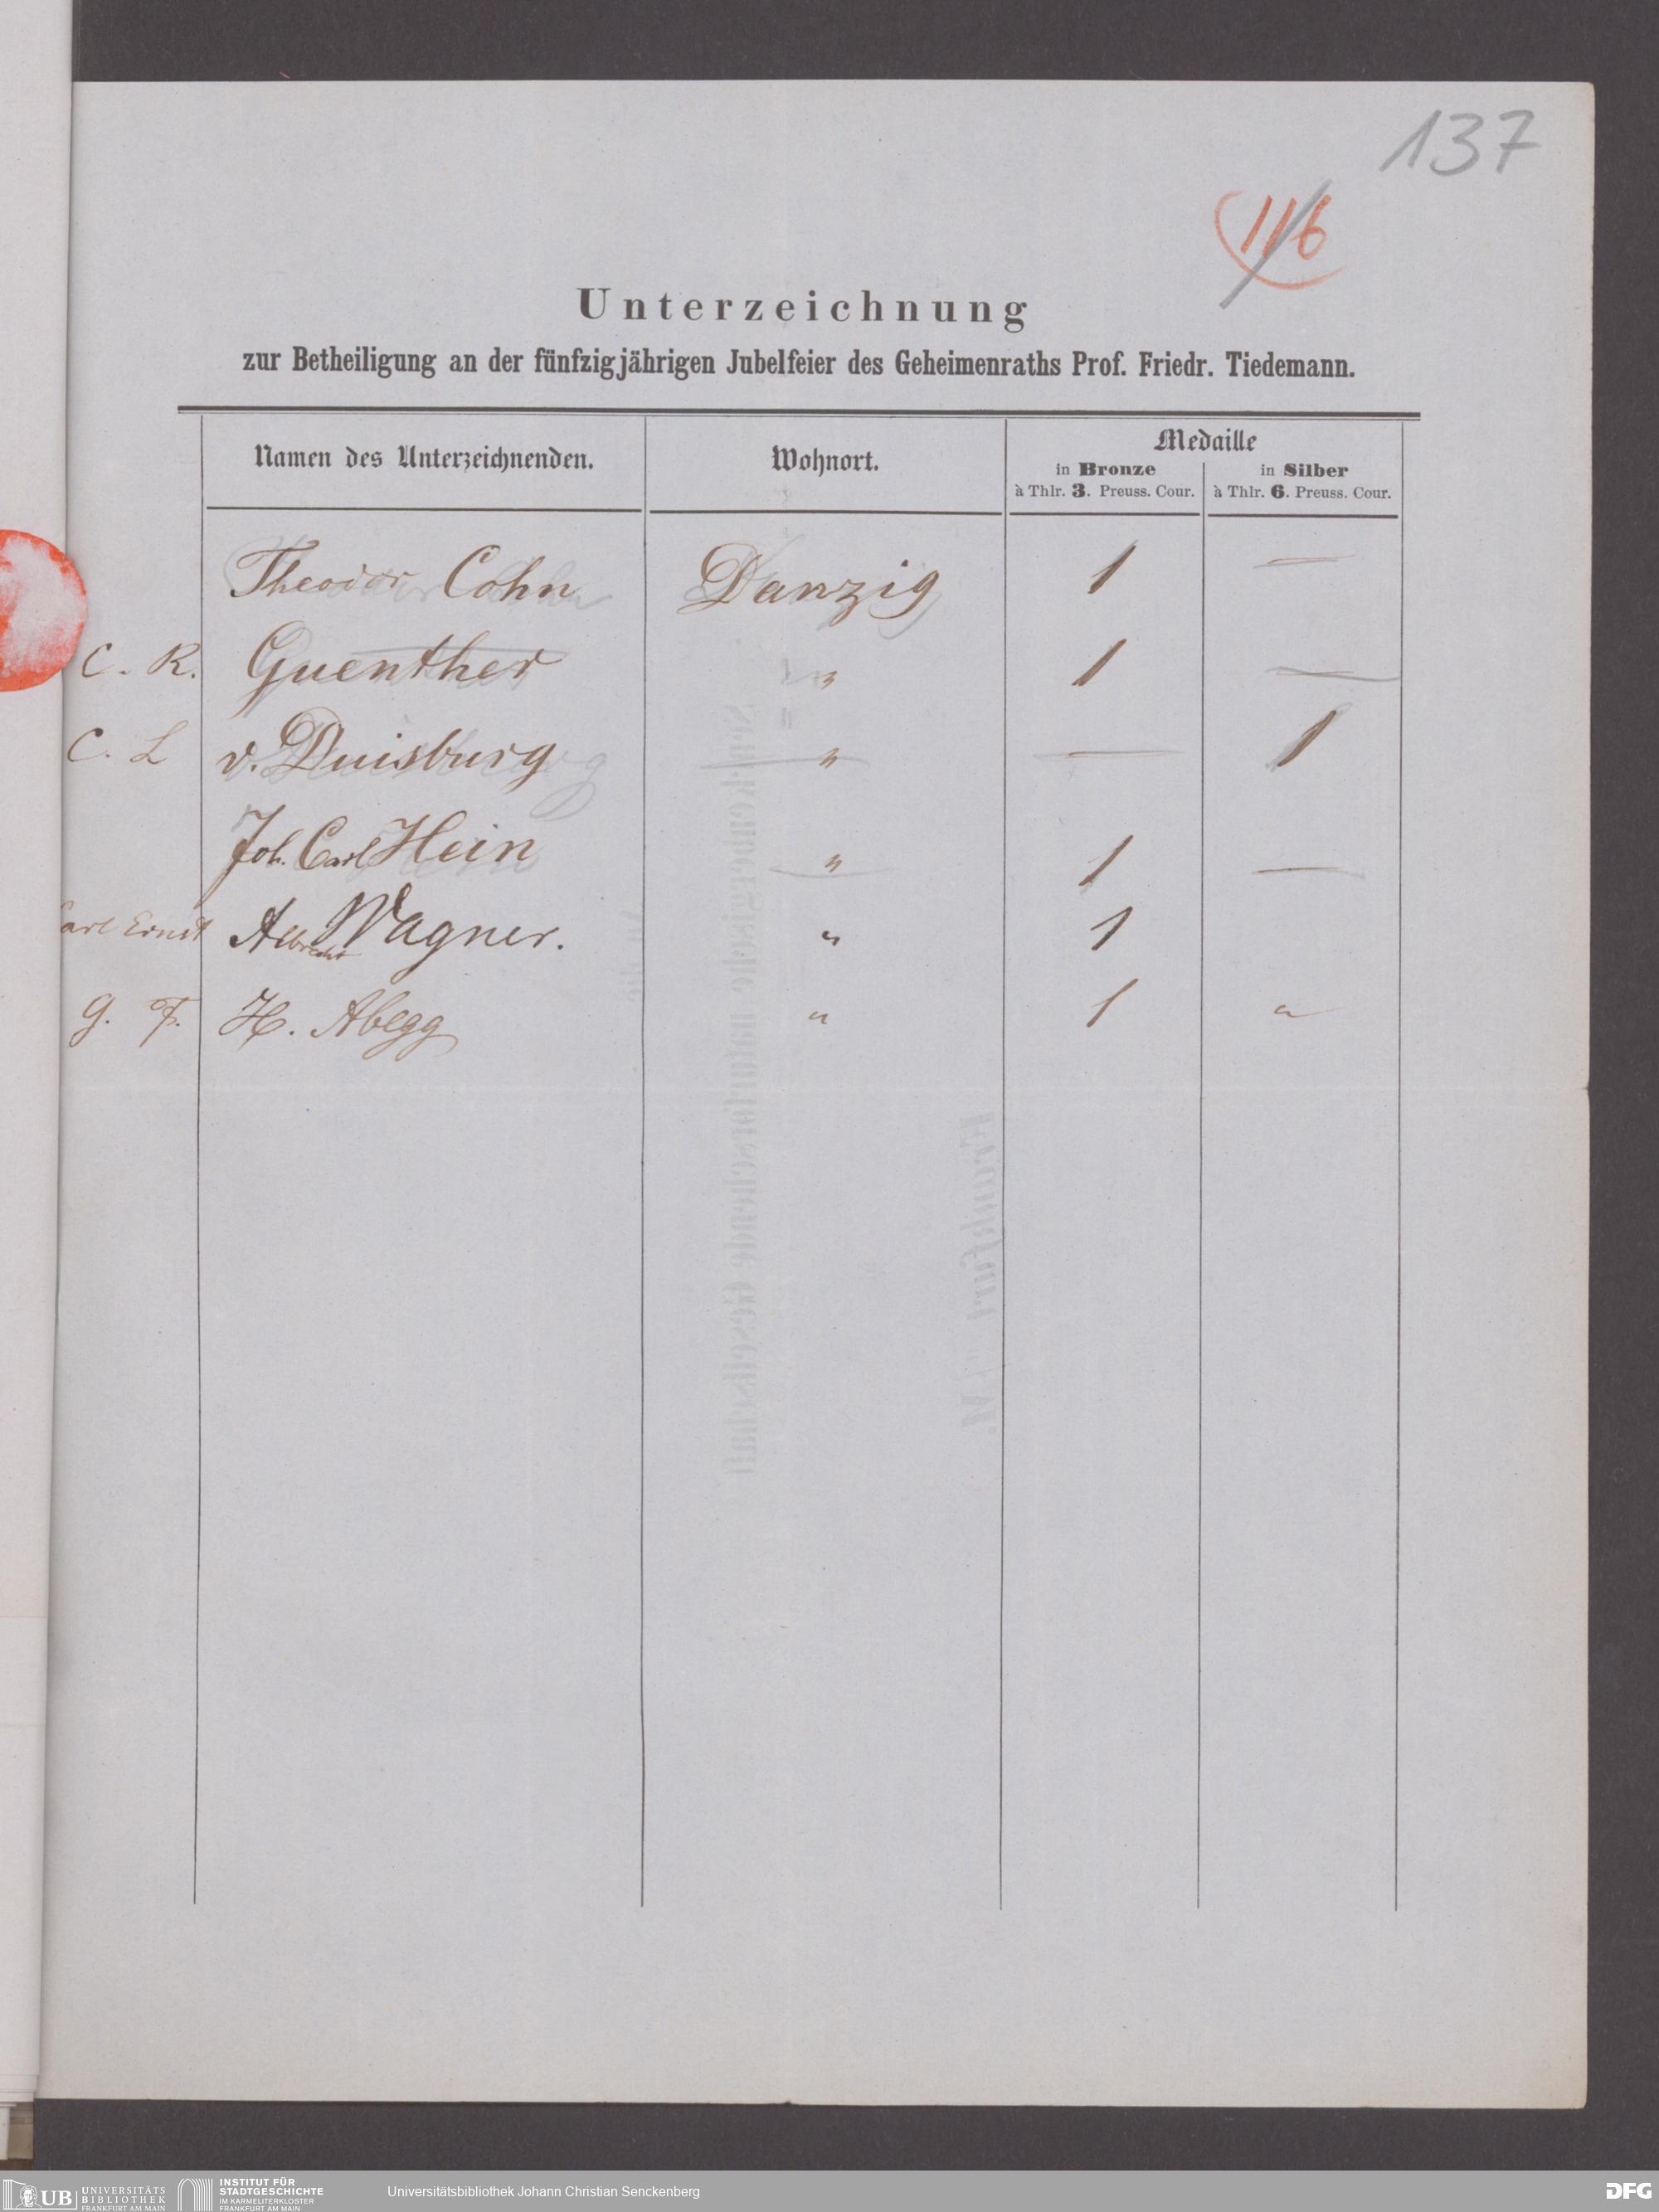 137
116
Unterzeichnung
zur Betheiligung an der fünfzigjährigen Jubelfeier des Geheimenraths Prof. Friedr. Tiedemann.
Namen des Unterzeichnenden. Wohnort. Medaille
in Bronze in Silber
à Thlr. 3. Preuss. Cour. à Thlr. 6. Preuss. Cour.
Theodor Cohn Danzig 1 —
C. R. Guenther " 1 —
C. L v. Duisburg " — 1
Joh. Carl Hein " 1 —
Carl Ernst Albrecht Wagner. " 1
G. F. H. Abegg " 1 "
UB UNIVERSITÄTS
BIBLIOTHEK
FRANKFURT AM MAIN
INSTITUT FÜR
STADTGESCHICHTE
IM KARMELITERKLOSTER
FRANKFURT AM MAIN
Universitätsbibliothek Johann Christian Senckenberg
DFG